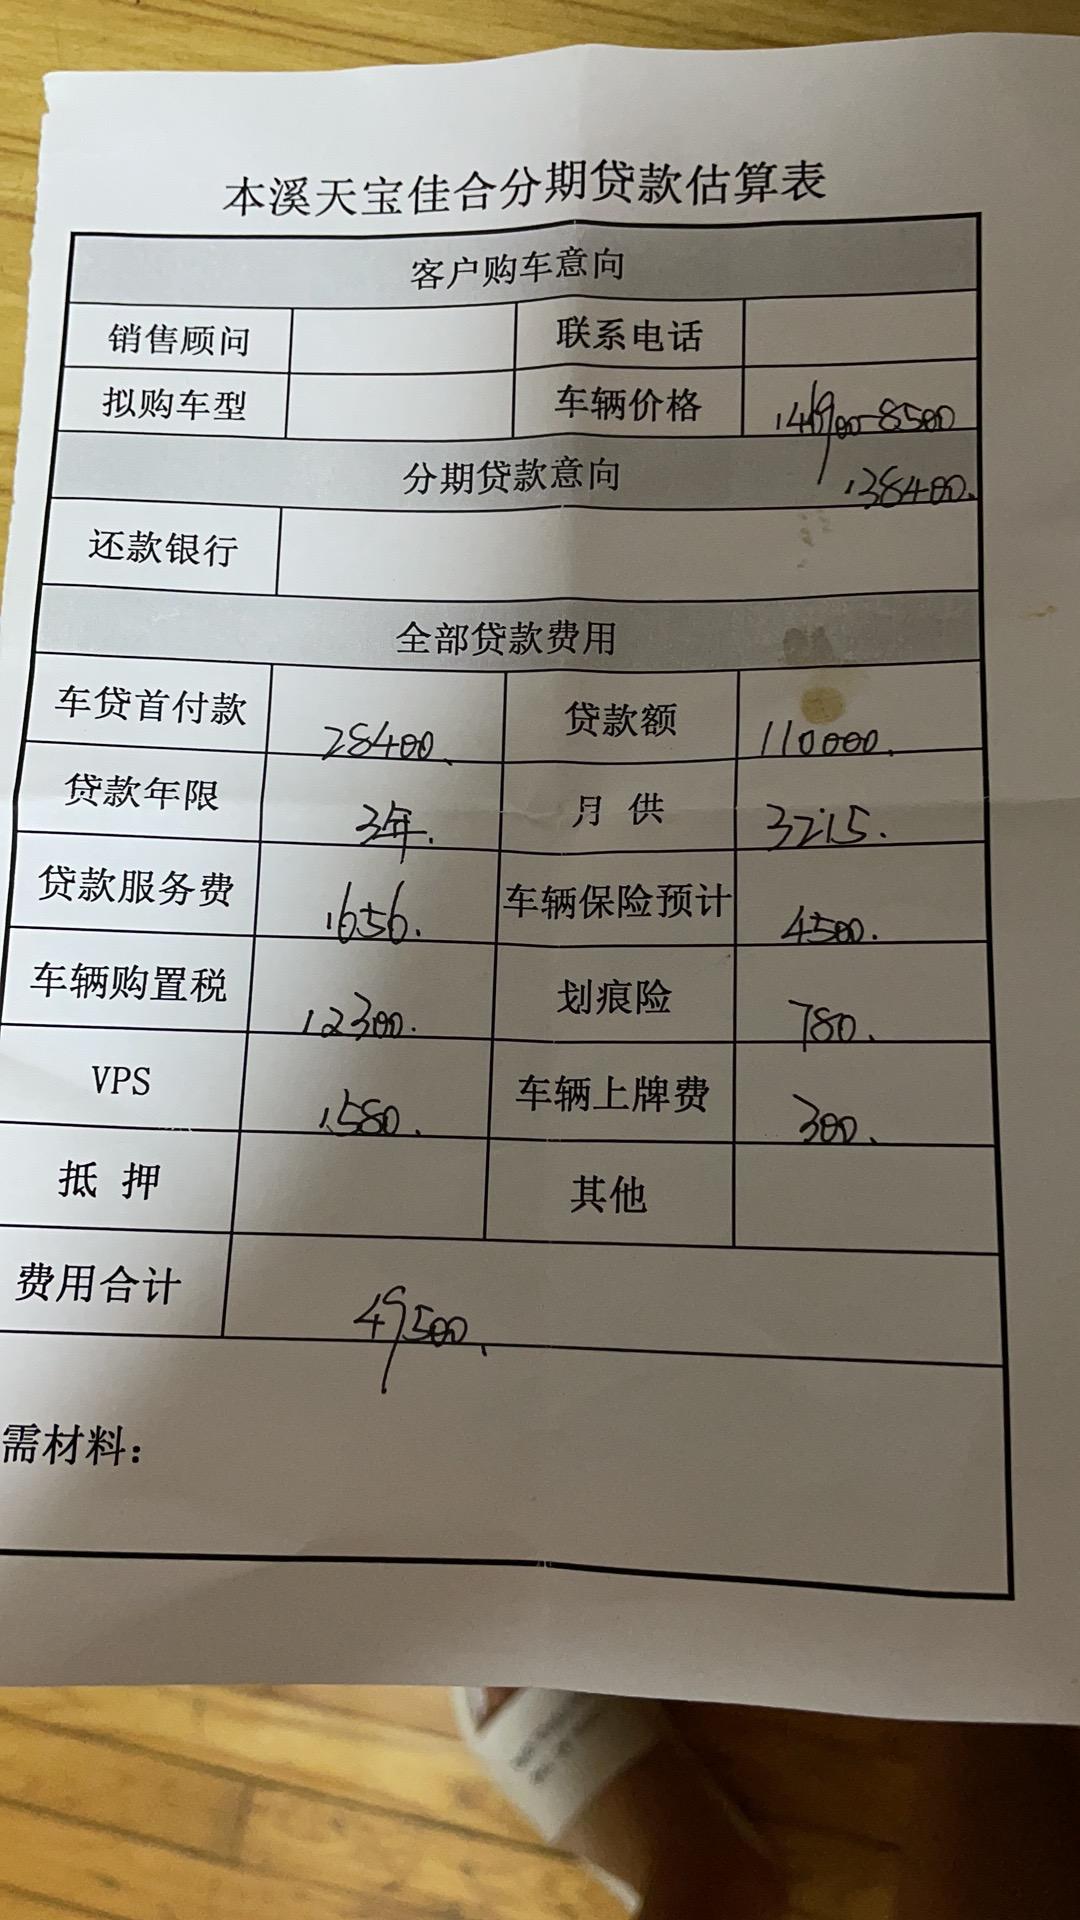 本溪天宝佳合分期贷款估算表
客户购车意向
销售顾问 联系电话
拟购车型 车辆价格 146900-8500
分期贷款意向 138400.
还款银行
全部贷款费用
车贷首付款 28400. 贷款额 110000.
贷款年限 3年. 月供 3215.
贷款服务费 1656. 车辆保险预计 4500.
车辆购置税 12300. 划痕险 780.
VPS 1580. 车辆上牌费 300.
抵押 其他
费用合计 49500.
需材料：